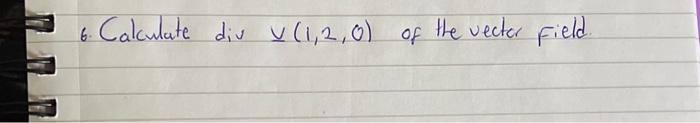 6. Calculate div v (1,2,0) of the vector Field.